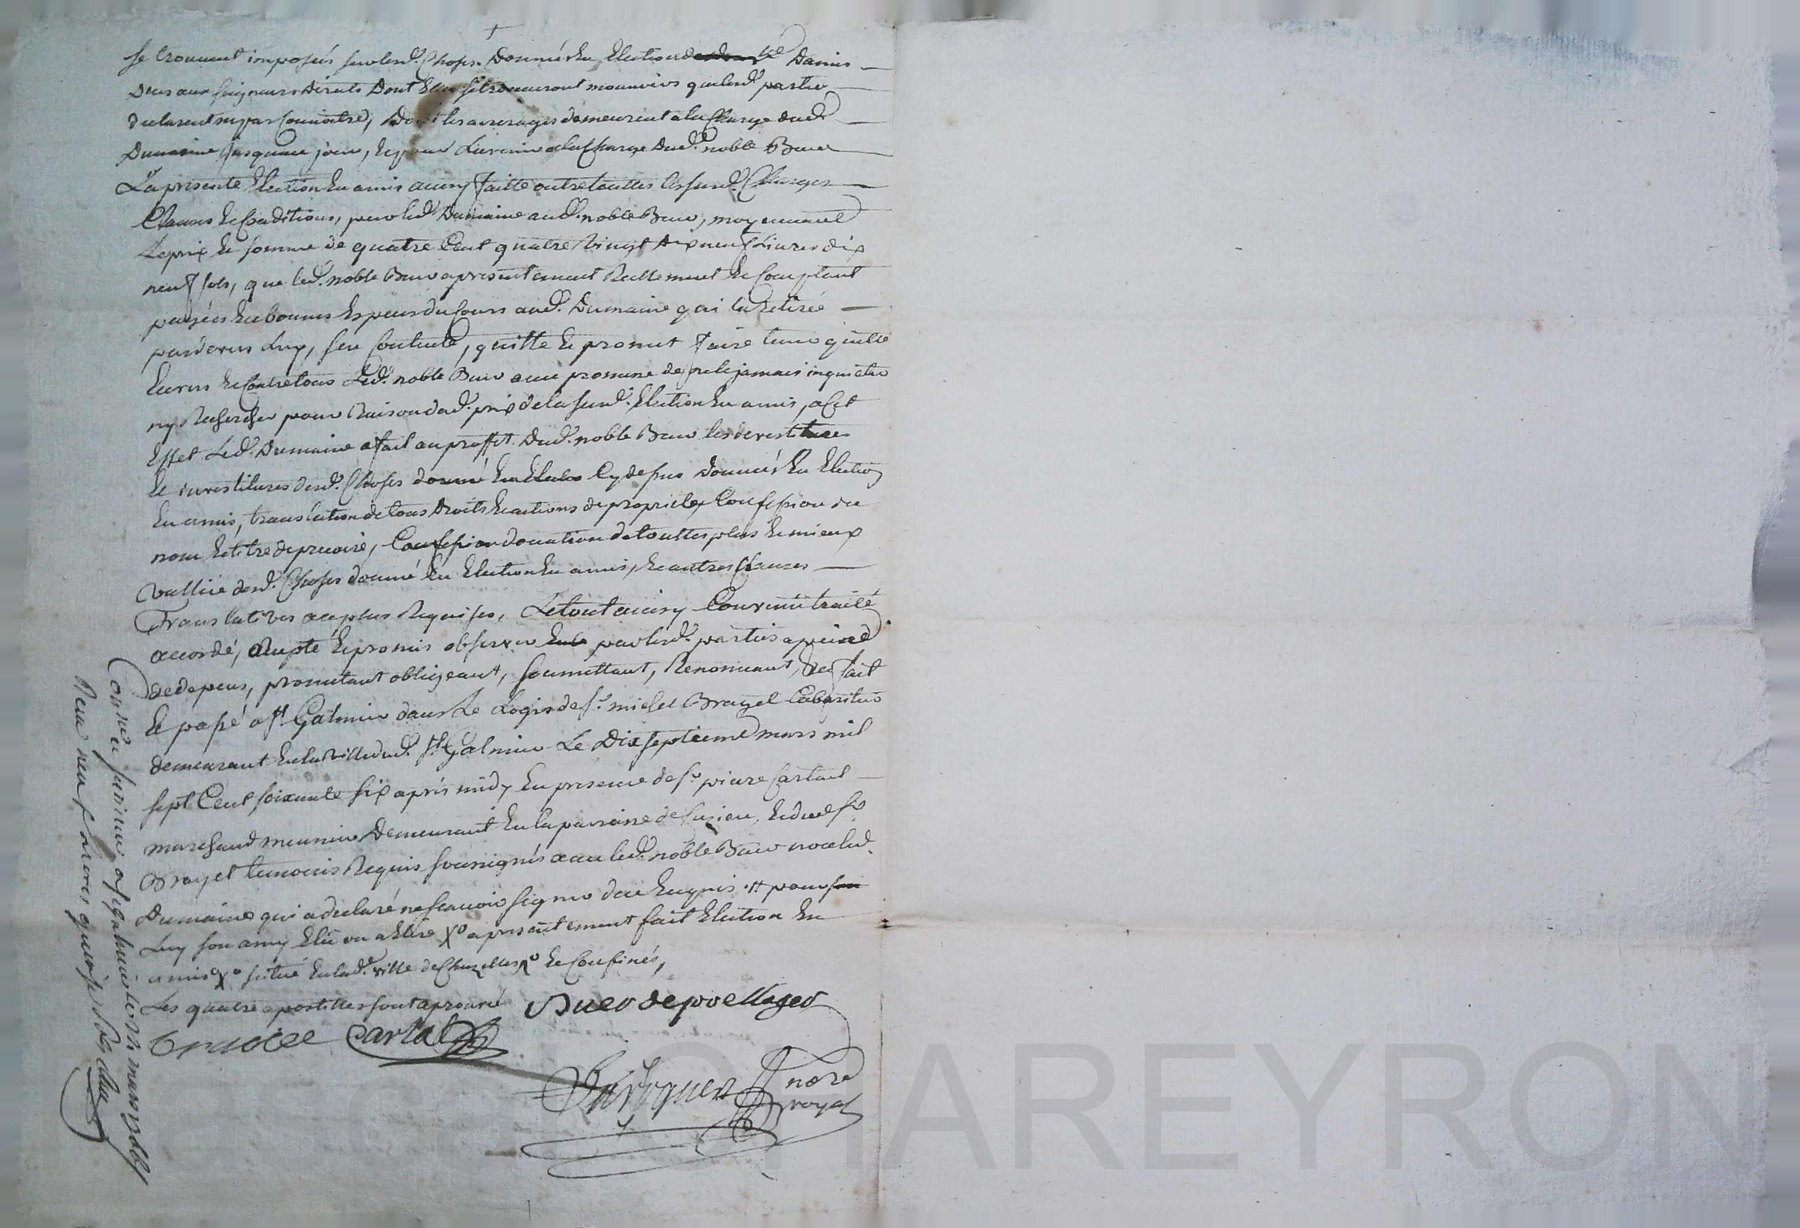 se trouvent imposés sur lesd. choses données en Election d'amis
Deus aux seigneurs directs dont elles se trouveront mouvoirs que lesd. parties
declarent ne pas connoitre, dont les arrerages demeurent à la charge dud.
Dumaine jusqu'au jour, et pour l'avenir a la charge dud. noble Buer
La presente Election en amis ainsy faitte outre touttes les susd. charges
Clauses et conditions, par led. Dumaine aud. noble Buer, moyennant
Le prix et somme de quatre cent quatre vingt dix neuf Livres dix
neuf sols, que led. noble Buer a presentement Reellement et comptant
payées en bonnes especes du cours aud. Dumaine qui la Retirée
pardevers Luy, s'en contente, quitte et promet faire tenir quitte
Envers et contre tous Led. noble Buer avec promesse de ne le jamais inquieter
ny Rechercher pour Raison dud. prix de la susd. Election en amis, a cet
Effet Led. Dumaine a fait au proffit dud. noble Buer les devestitures
et investitures desd. choses cy dessus données en Election
En amis, translation de tous droits et actions de proprieté, Confession du
nom et titre de precaire, Confession donation de touttes plus et mieux
vallue desd. choses donné en Election en amis, et autres clauses
Translatives au plus Requises, Le tout ainsy Convenu traité
accordé, accepté et promis observer par lesd. parties a peine
de depens, promettant obligeant, soumettant, Renonceant, fait
et passé a St. Galmier dans Le Logis de Sr. michel Brayet Cabaretier
demeurant en la ville dud. St. Galmier Le Dix septieme mars mil
sept Cent soixante six après midy En presence de Sr. pierre Cartal
marchand meunier Demeurant En la paroisse de , et dud. Sr.
Brayet temoins Requis soussignés avec led. noble Buer non led.
Dumaine qui a declaré ne scavoir signer de ce Enquis pour
Luy son amy Elû ou a Elire Xo a presentement fait Election En
amis Xo situé en lad. ville de Chazelles Xo et Confinés,
Les quatre apostilles sont aprouvé
Buer
Cartal
nore
royal
Conlé a St. galmier le 17 mars 1766
Reçu neuf livres quinze sols
CHAREYRON